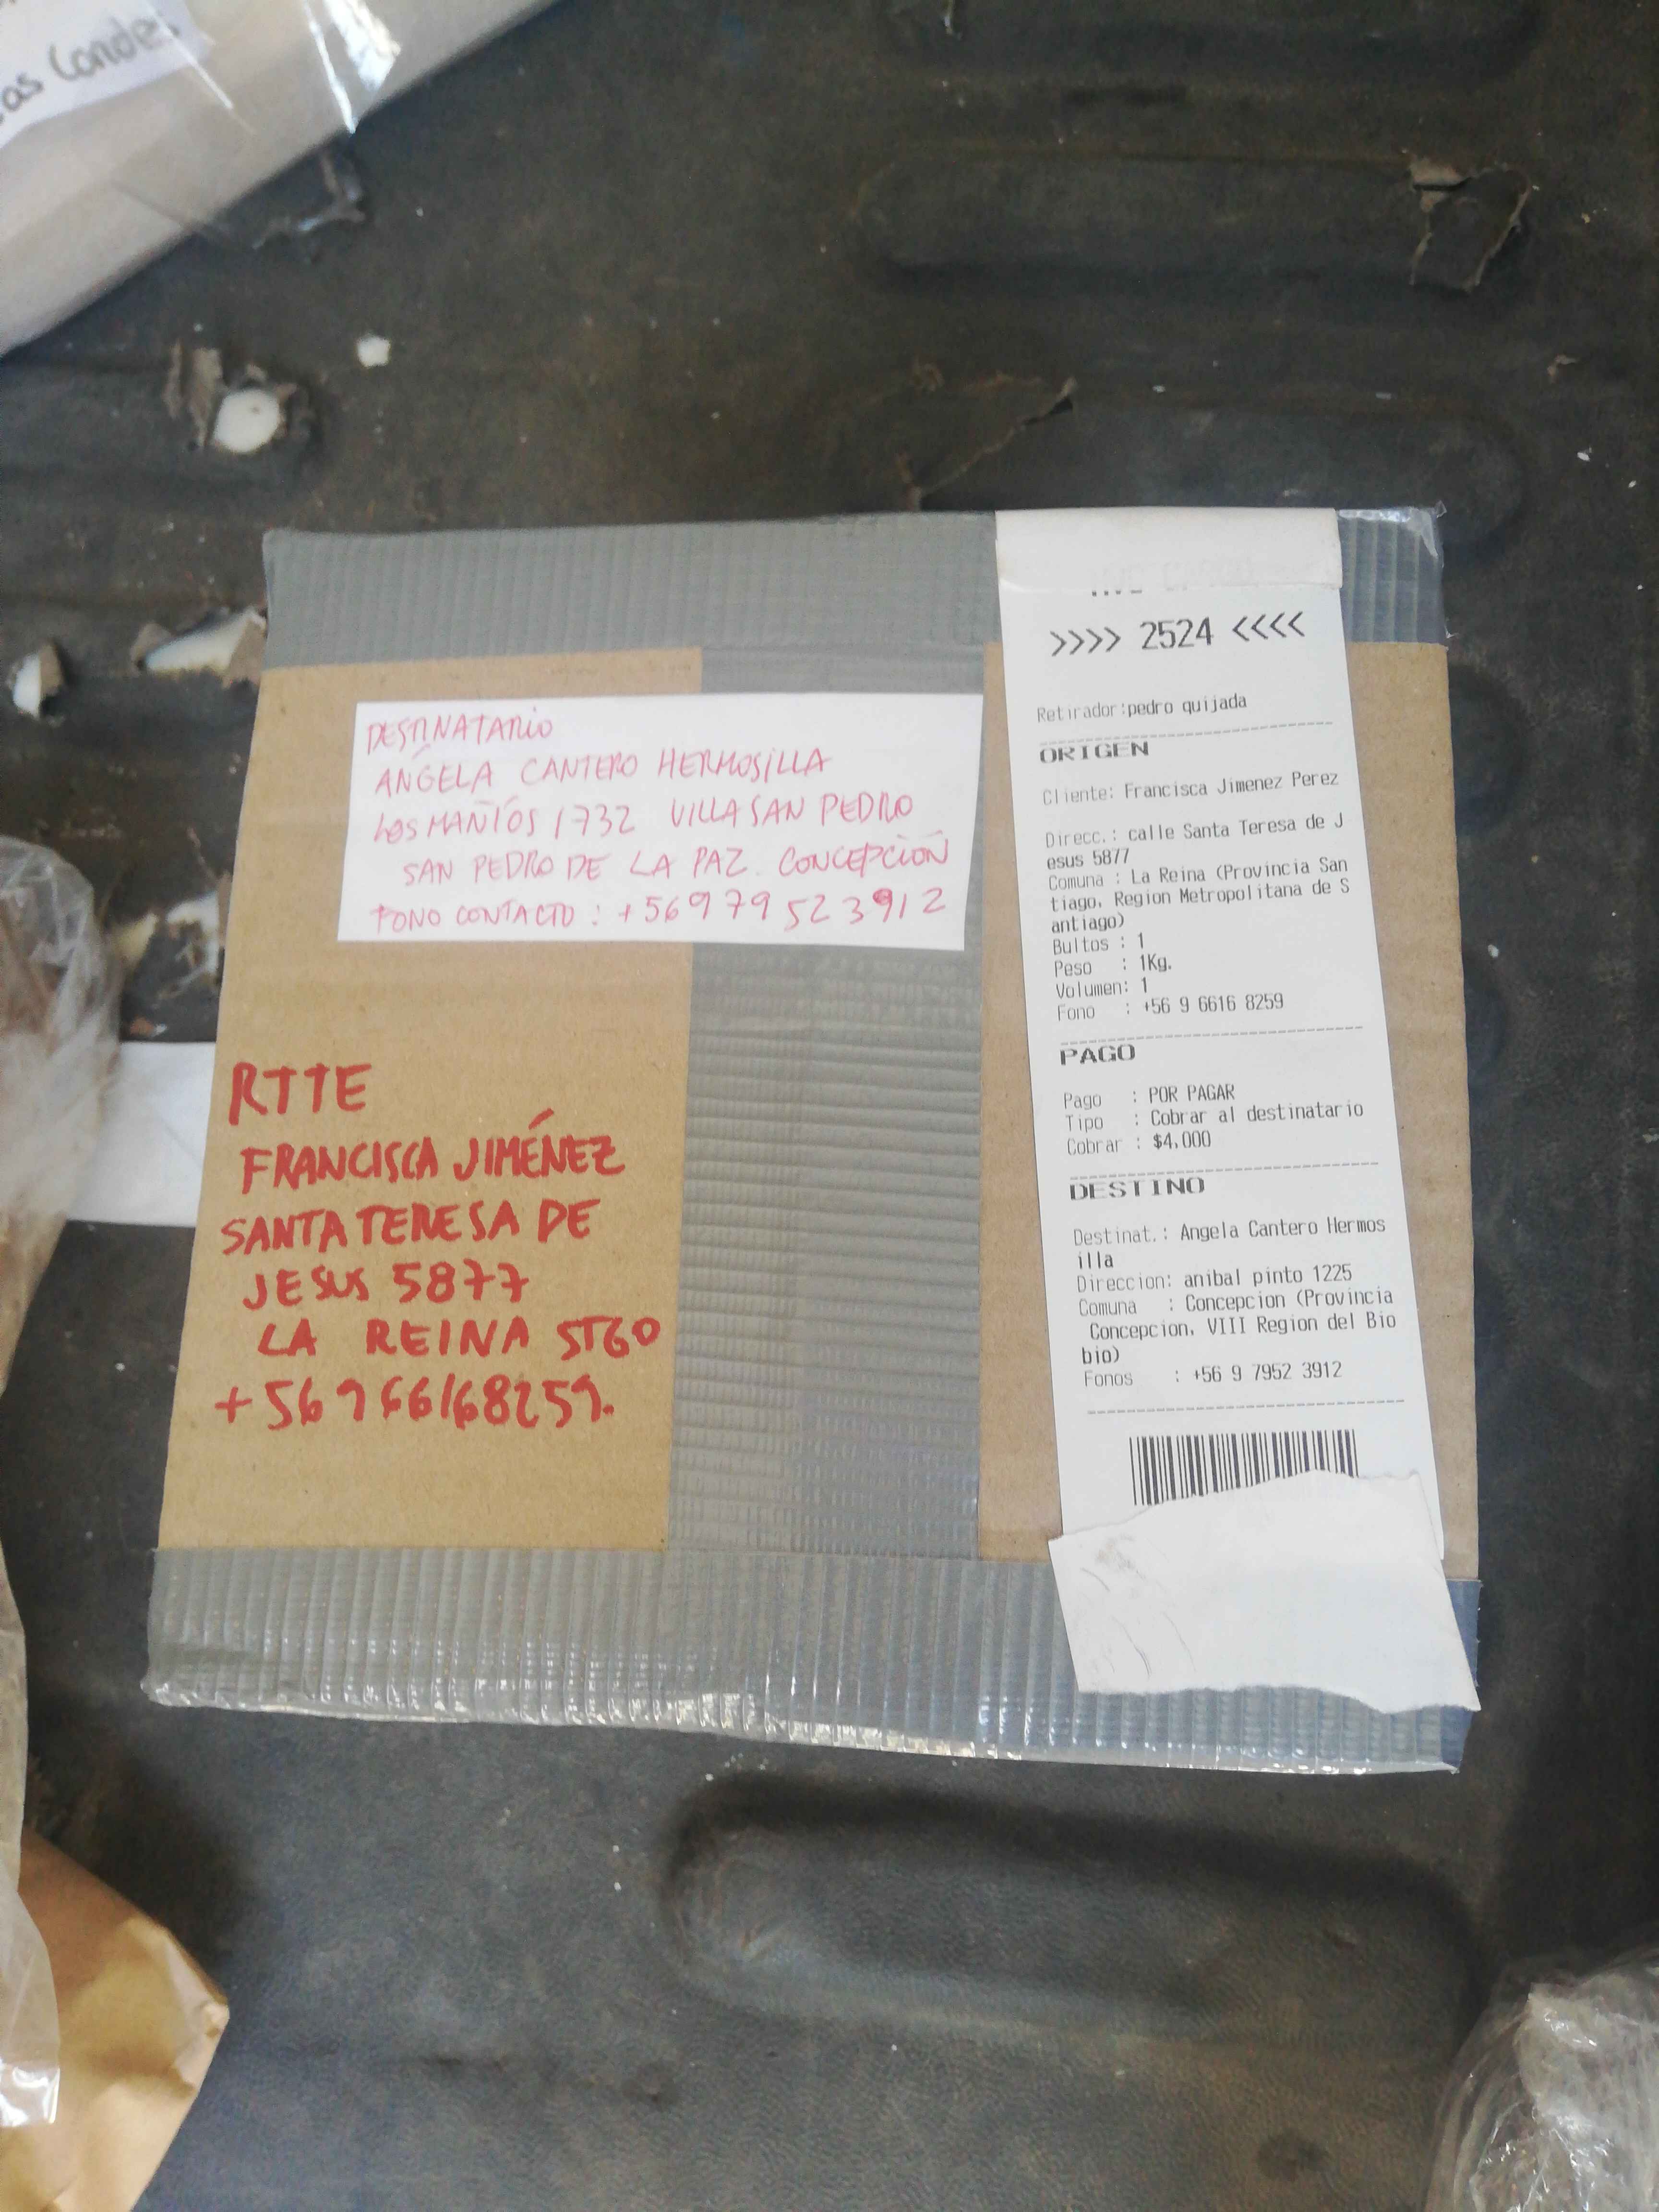 Las Condes
DESTINATARIO
ÁNGELA CANTERO HERMOSILLA
LOS MAÑIOS 1732 VILLA SAN PEDRO
SAN PEDRO DE LA PAZ. CONCEPCIÓN
FONO CONTACTO : +56979523912
RTTE
FRANCISCA JIMÉNEZ
SANTA TERESA DE
JESUS 5877
LA REINA STGO
+56966168259.
>>>> 2524 <<<<
Retirador:pedro quijada
ORIGEN
Cliente: Francisca Jimenez Perez
Direcc.: calle Santa Teresa de J
esus 5877
Comuna : La Reina (Provincia San
tiago, Region Metropolitana de S
antiago)
Bultos : 1
Peso : 1Kg.
Volumen: 1
Fono : +56 9 6616 8259
PAGO
Pago : POR PAGAR
Tipo : Cobrar al destinatario
Cobrar : $4,000
DESTINO
Destinat.: Angela Cantero Hermos
illa
Direccion: anibal pinto 1225
Comuna : Concepcion (Provincia
Concepcion, VIII Region del Bio
bio)
Fonos : +56 9 7952 3912